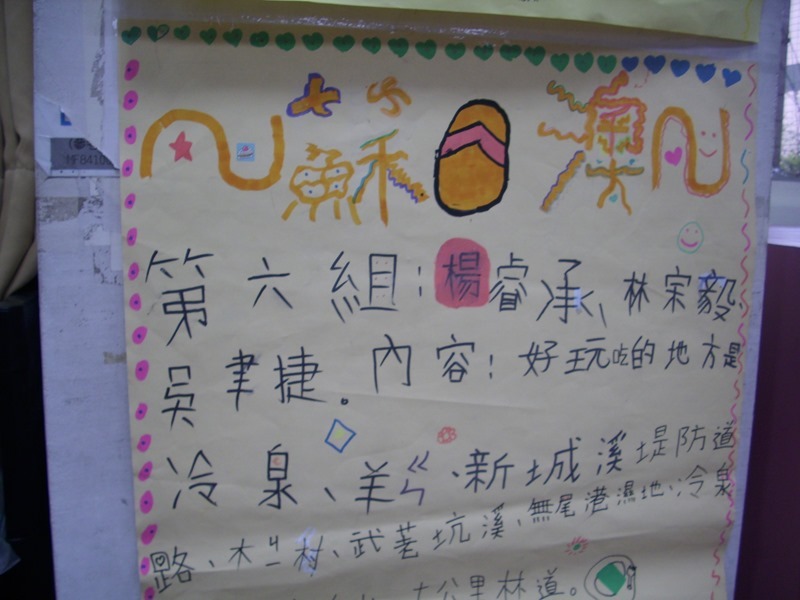 蘇澳
第六組:楊睿承、林宋毅、
吳聿捷。內容:好玩吃的地方是
冷泉、羊ㄍㄣ、新城溪堤防道
路、木ㄐㄧ村、武荖坑溪、無尾港濕地、冷泉
公里林道。
MF8410